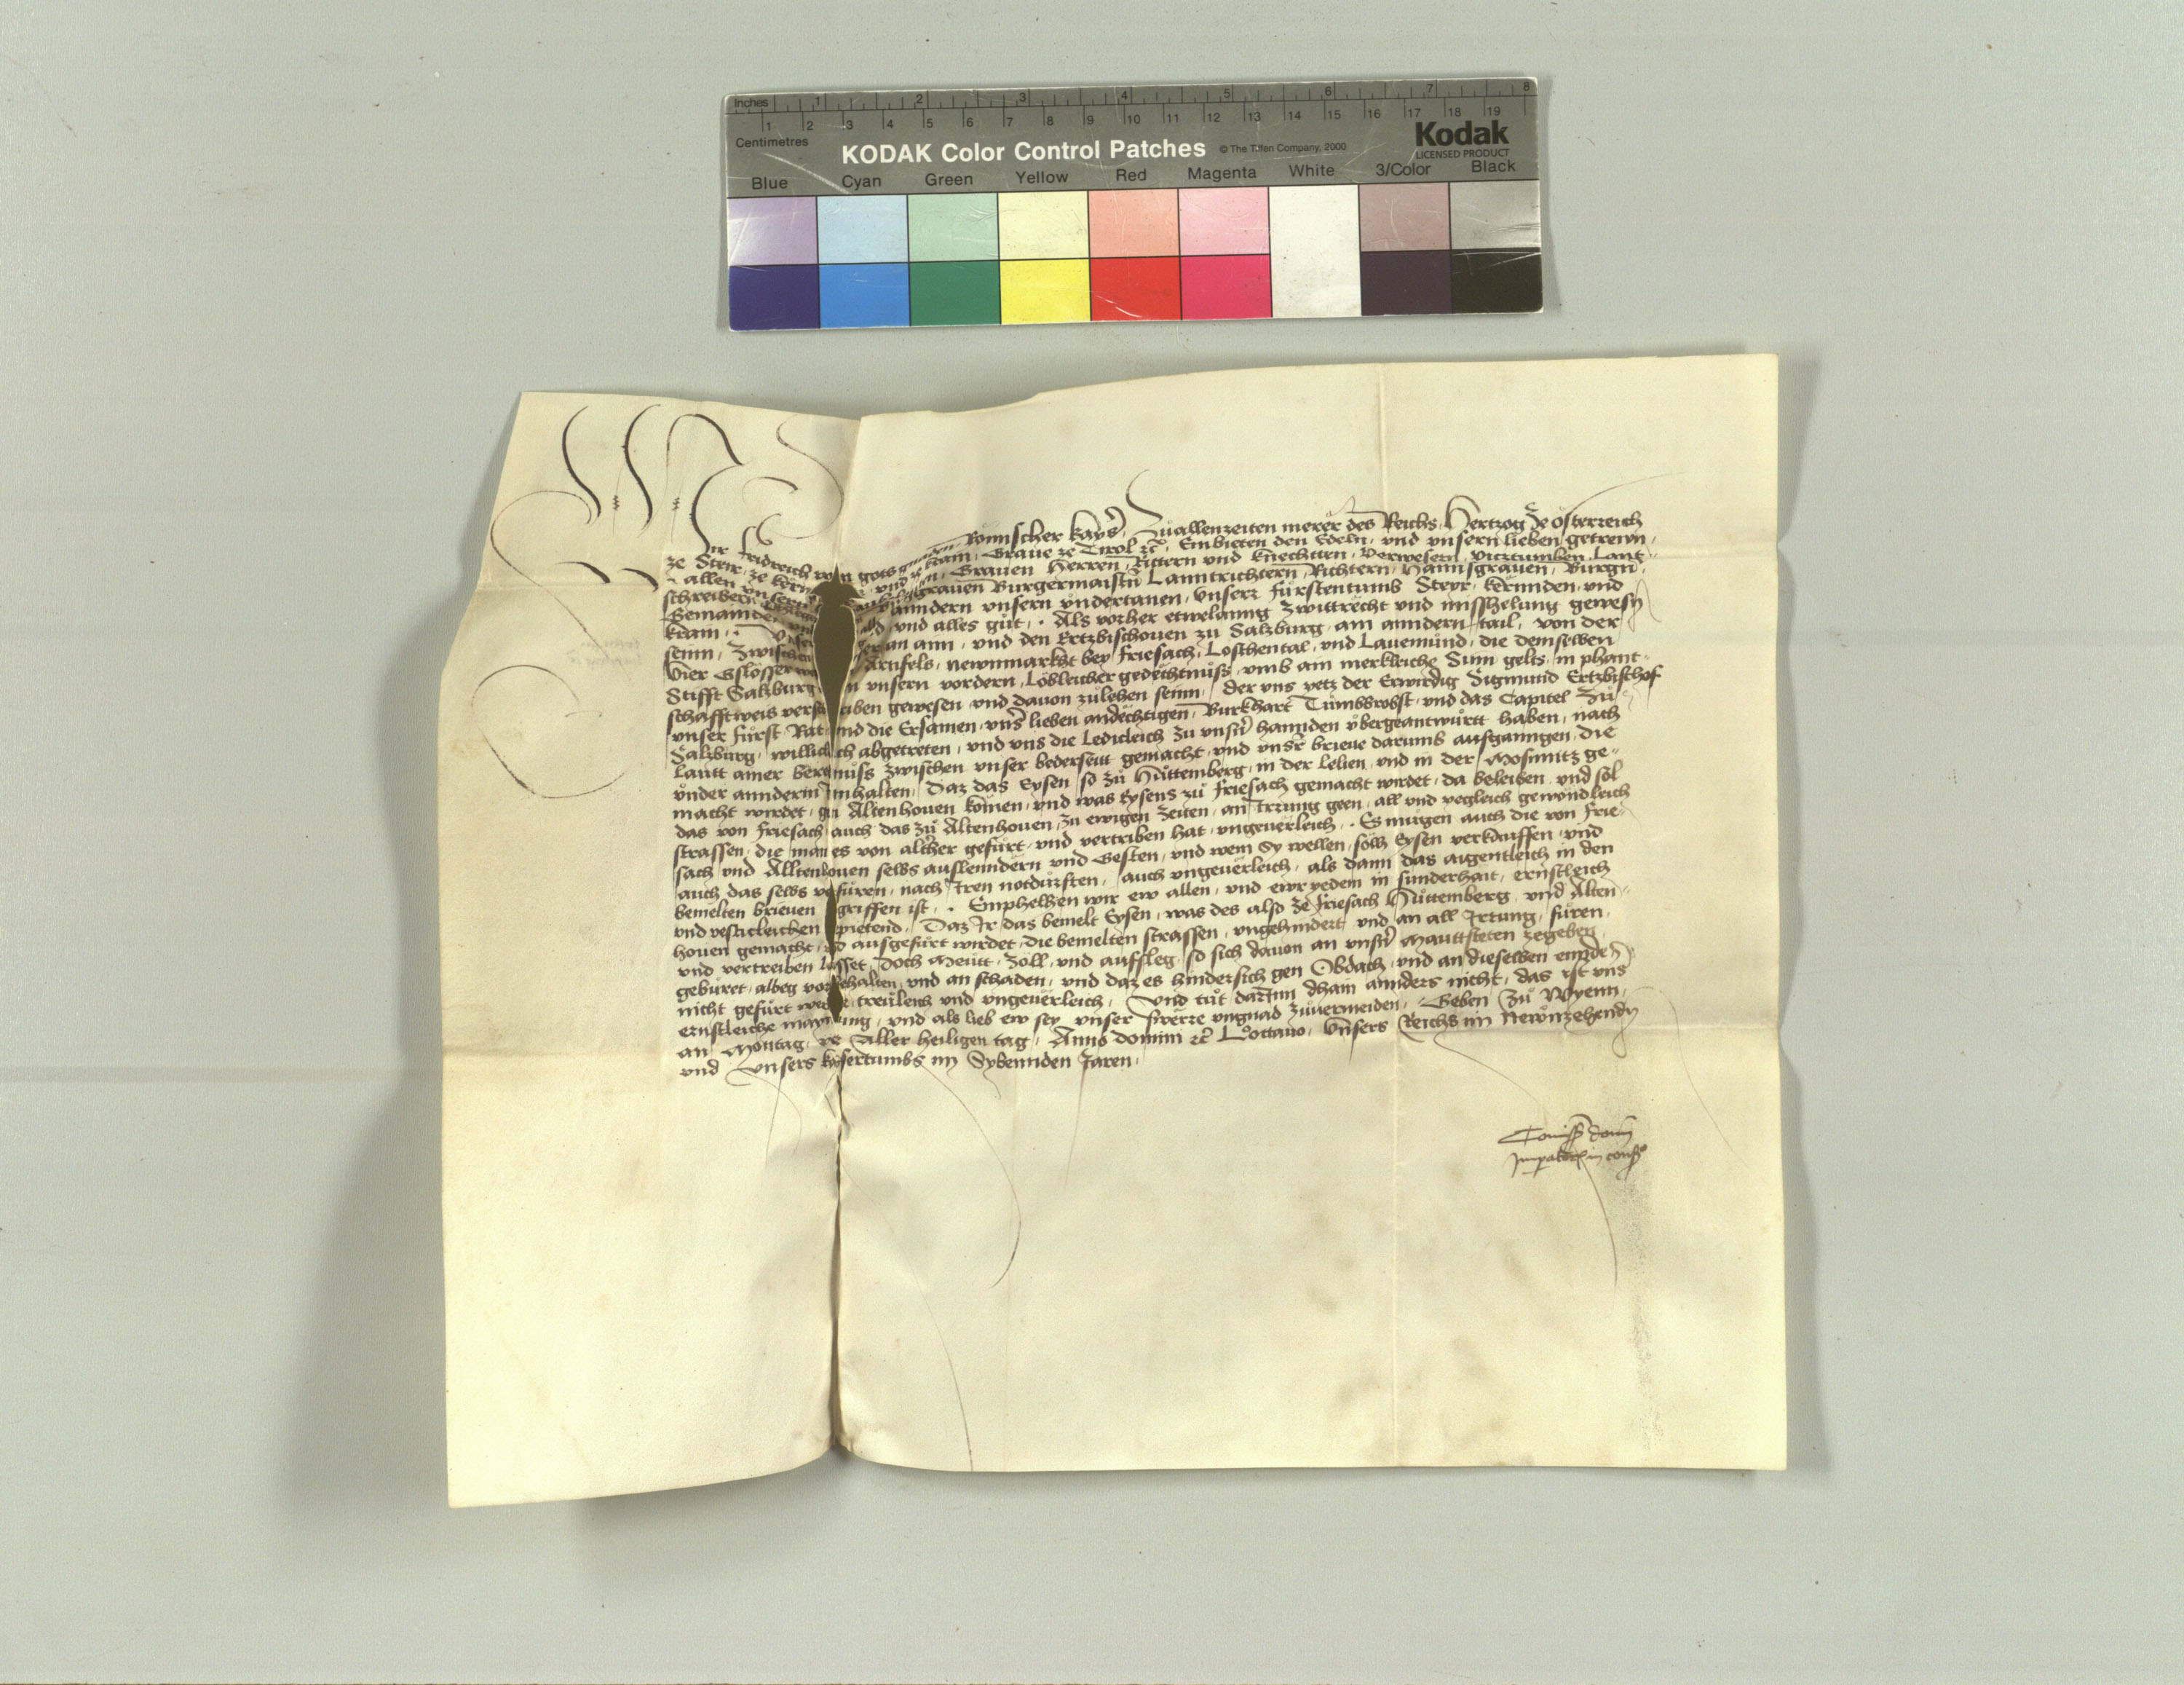 Inches 1 2 3 4 5 6 7 8
1 2 3 4 5 6 7 8 9 10 11 12 13 14 15 16 17 18 19
Centimetres
KODAK Color Control Patches © The Tiffen Company, 2000 Kodak
LICENSED PRODUCT
Blue Cyan Green Yellow Red Magenta White 3/Color Black
Wir Fridreich von gots gnaden Römischer kayser Zuallenzeiten merer des Reichs Hertzog ze österreich
ze Steir ze kernn und ze krain Graue ze Tirol etc Embieten den Edeln und unsern lieben getrewn
allen unsern Grauen Herren Rittern und knechten Verwesern vitztumben Lant
schreibern grauen Burgermaistern Lanntrichtern Richtern Hannsgrauen Burgern
Gemainden und anndern unsern undertanen unserr fürstentumb Steyr kernnden und
krain gnad und alles gut Als vorher etwelanng zwittrecht und misshelung gewesn
seinn Zwischen an ainn und den Ertzbischouen zu Salzburg am anndern tail von der
Vier Gslösser Arnfels newnmarkht bey friesach Loschental und Lauemund die demselben
Stifft Salzburg unsern vordern Löbleicher gedechtnüss umb ain merkleiche Sum gelts in phant
schafftweis verschriben gewesen und dauon zulehen seinn der uns yetz der Erwirdig Sigmund Ertzbischof
unser fürst Rat und die Ersamen unser lieben andechtigen Burkhart Tumbbrobst und das Capitel zu
Salzburg willich abgetreten und uns die Ledicleich zu unsern hannden übergeantwurtt haben nach
lautt ainer beredtnüss zwischen unser bederseitt gemacht und unser brieue darumb ausganngen die
under annderm Innhalten Daz das Eysen so zu Hüttemberg in der lelien und in der Mosnitz ge
macht wirdet gen Altenhouen komen und was Eysens zu friesach gemacht wirdet da beleiben und sol
das von friesach auch das zu Altenhouen zu ewigen zeiten an Irrung geen all und yegleich gewondleich
strassen die man es von altther gefürt und vertriben hat ungeuerleich Es mugen auch die von frie
sach und Alltenhouen selbs auslenndern und Gesten und wem Sy wellen solh Eysen verkauffen und
auch das selbs verfüren nach Iren notdurften auch ungeuerleich als dann das aigentleich in den
bemelten brieuen begriffen ist Emphelhen wir ew allen und ewr yedem in sunderhait ernstleich
und vesticleichen gepietend Daz Ir das bemelt Eysen was des also ze friesach Hüttemberg und Alten
houen gemacht und ausgefürt wirdet die bemelten strassen ungehindert und an all Irrung füren
und vertreiben lasset Doch Meutt Zöll und auffleg so sich dauon an unsern Mauttsteten zegeben
geburet albeg vorbehalten und an schaden und daz es hindersich gen Obdach und an dieselben ennde
nicht gefürt werde treulich und ungeuerleich Und tut darinn dhain annders nicht das ist uns
ernstleiche maynung und als lieb ew sey unser swerre ungnad zuuermeiden Geben zu Wyenn
an Montag vor Aller heiligen tag Anno domini etc Loctauo Unsers Reichs im Newnzehenden
und unsers kaysertumbs im Sybennden Jaren
Comissio domini
Imperatoris in consilio